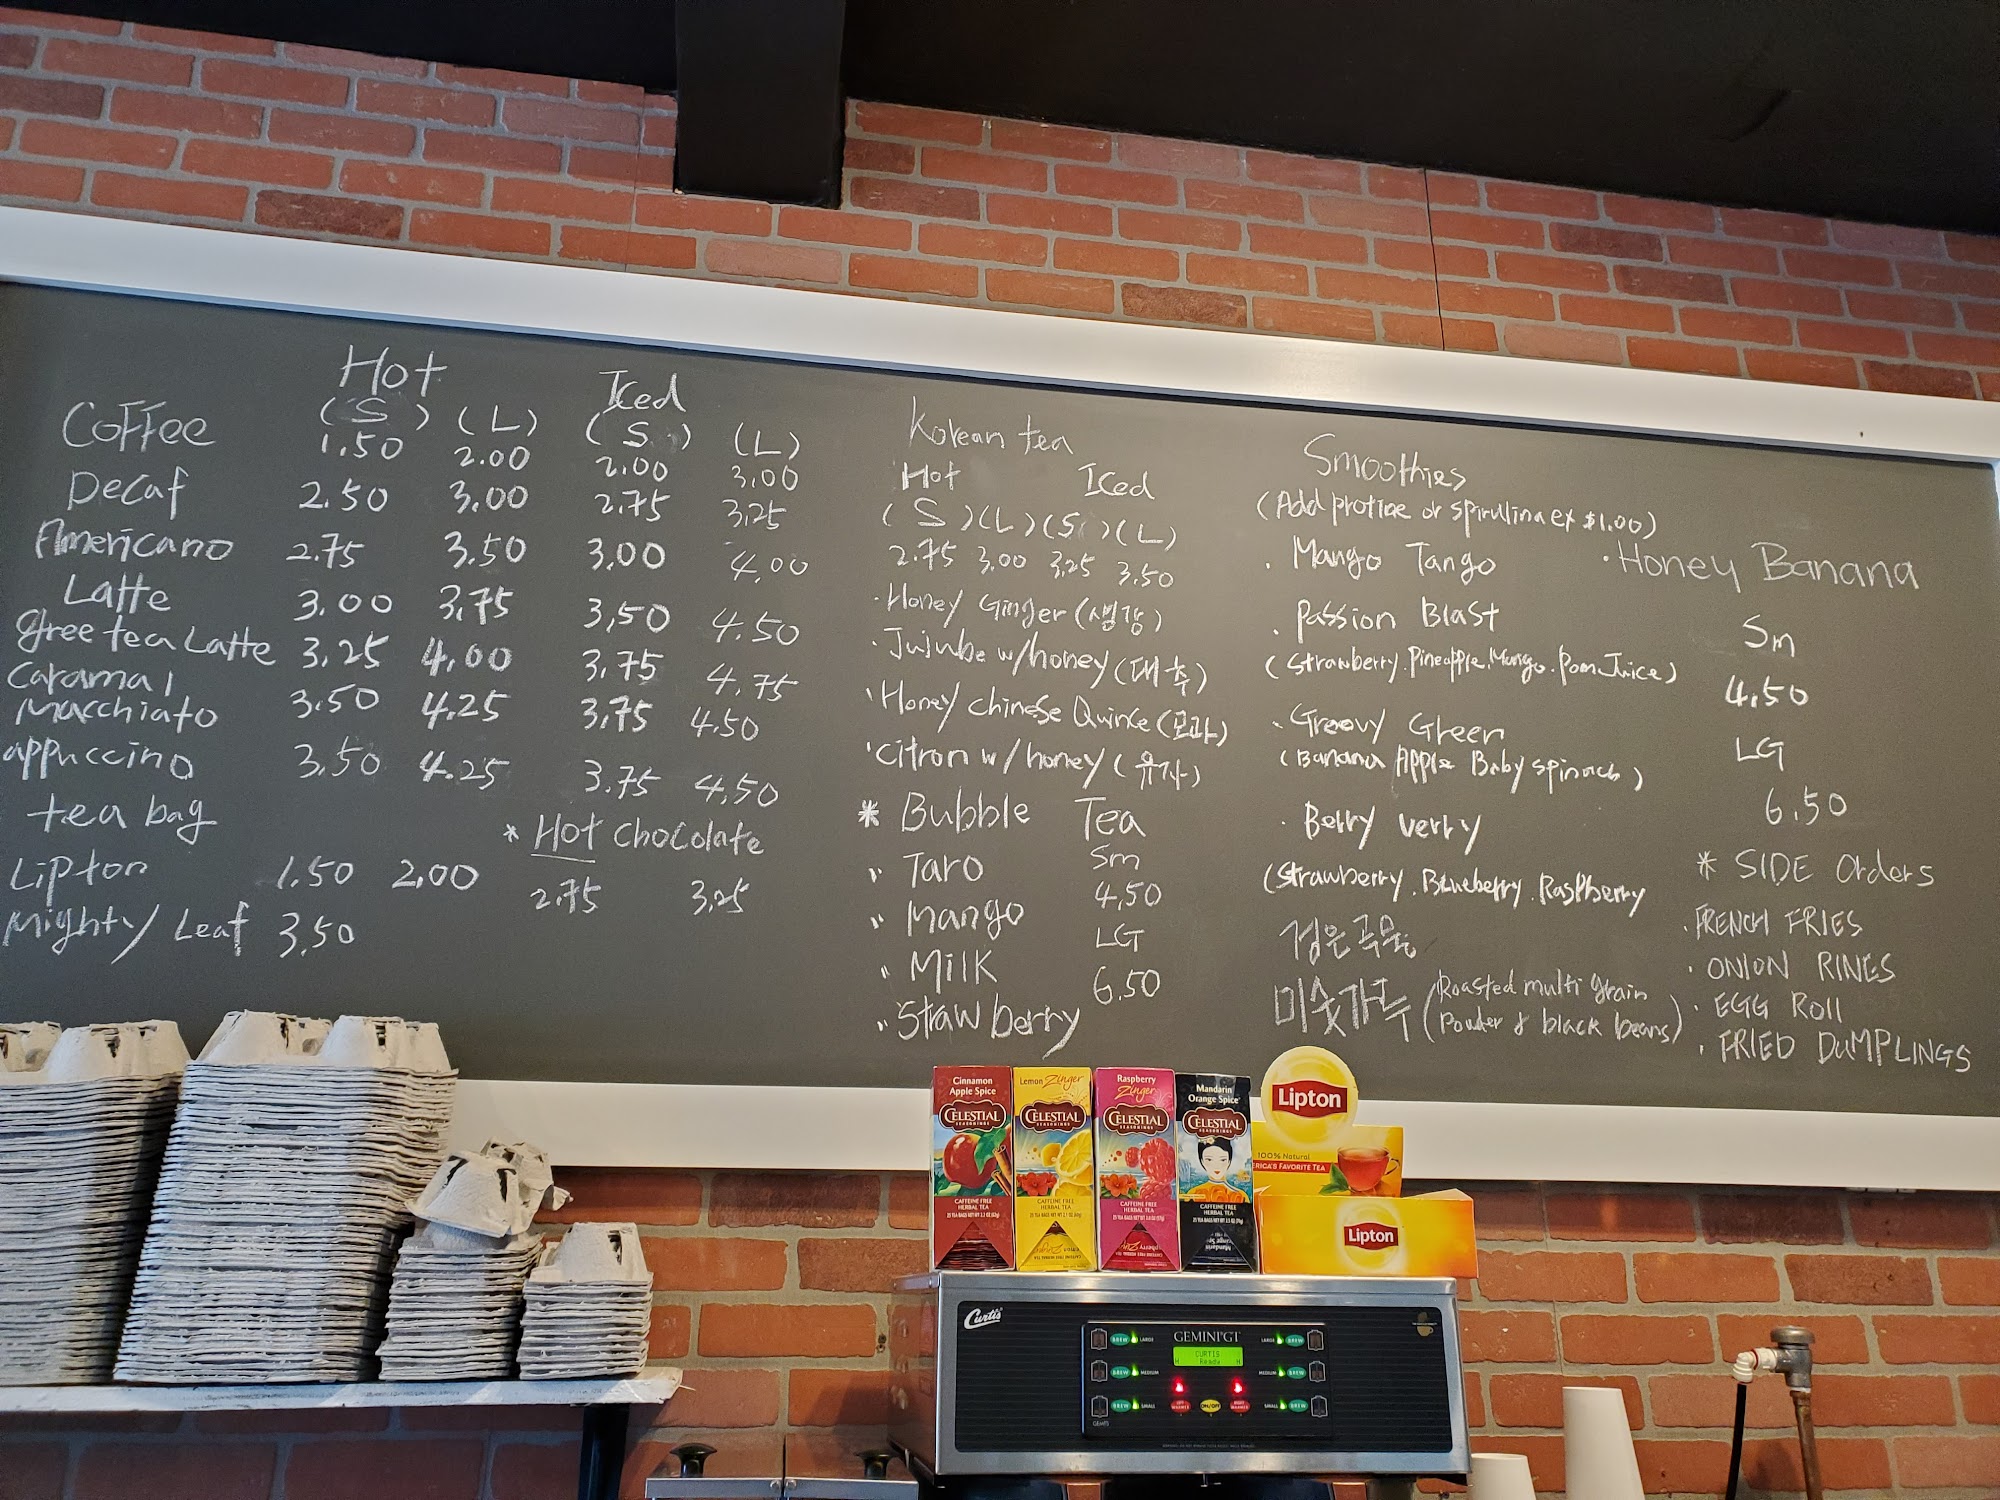 Hot Iced
Coffee (S) (L) (S) (L)
1.50 2.00 2.00 3.00
Decaf 2.50 3.00 2.75 3.25
Americano 2.75 3.50 3.00 4.00
Latte 3.00 3.75 3.50 4.50
gree tea Latte 3.25 4.00 3.75 4.75
Caramal
Macchiato 3.50 4.25 3.75 4.50
appuccino 3.50 4.25 3.75 4.50
tea bag
Lipton 1.50 2.00
Mighty Leaf 3.50
* Hot Chocolate
2.75 3.25
Korean tea
Hot Iced
(S) (L) (S) (L)
2.75 3.00 3.25 3.50
· Honey Ginger (생강)
· Jujube w/honey (대추)
· Honey Chinese Quince (모과)
· Citron w/honey (유자)
* Bubble Tea
" Taro
" Mango
" Milk
" Strawberry
Sm
4.50
LG
6.50
Smoothies
(Add protine or spirulina ex $1.00)
· Mango Tango
· Passion Blast
(Strawberry. Pineapple. Mango. Pom. Juice)
· Groovy Green
(Banana Apple Baby spinach)
· Berry verry
(Strawberry. Blueberry. Raspberry
검은곡물
미숫가루 (Roasted multi grain
powder & black beans)
· Honey Banana
Sm
4.50
LG
6.50
* SIDE Orders
· FRENCH FRIES
· ONION RINGS
· EGG Roll
· FRIED DUMPLINGS
Cinnamon
Apple Spice
CELESTIAL
SEASONINGS
CAFFEINE FREE
HERBAL TEA
Lemon Zinger
CELESTIAL
SEASONINGS
CAFFEINE FREE
HERBAL TEA
Raspberry
Zinger
CELESTIAL
SEASONINGS
CAFFEINE FREE
HERBAL TEA
Mandarin
Orange Spice
CELESTIAL
SEASONINGS
CAFFEINE FREE
HERBAL TEA
Lipton
100% Natural
ERICA'S FAVORITE TEA
Lipton
Curtis
GEMINI GT
CURTIS
Ready
BREW LARGE LARGE BREW
BREW MEDIUM MEDIUM BREW
BREW SMALL ON/OFF SMALL BREW